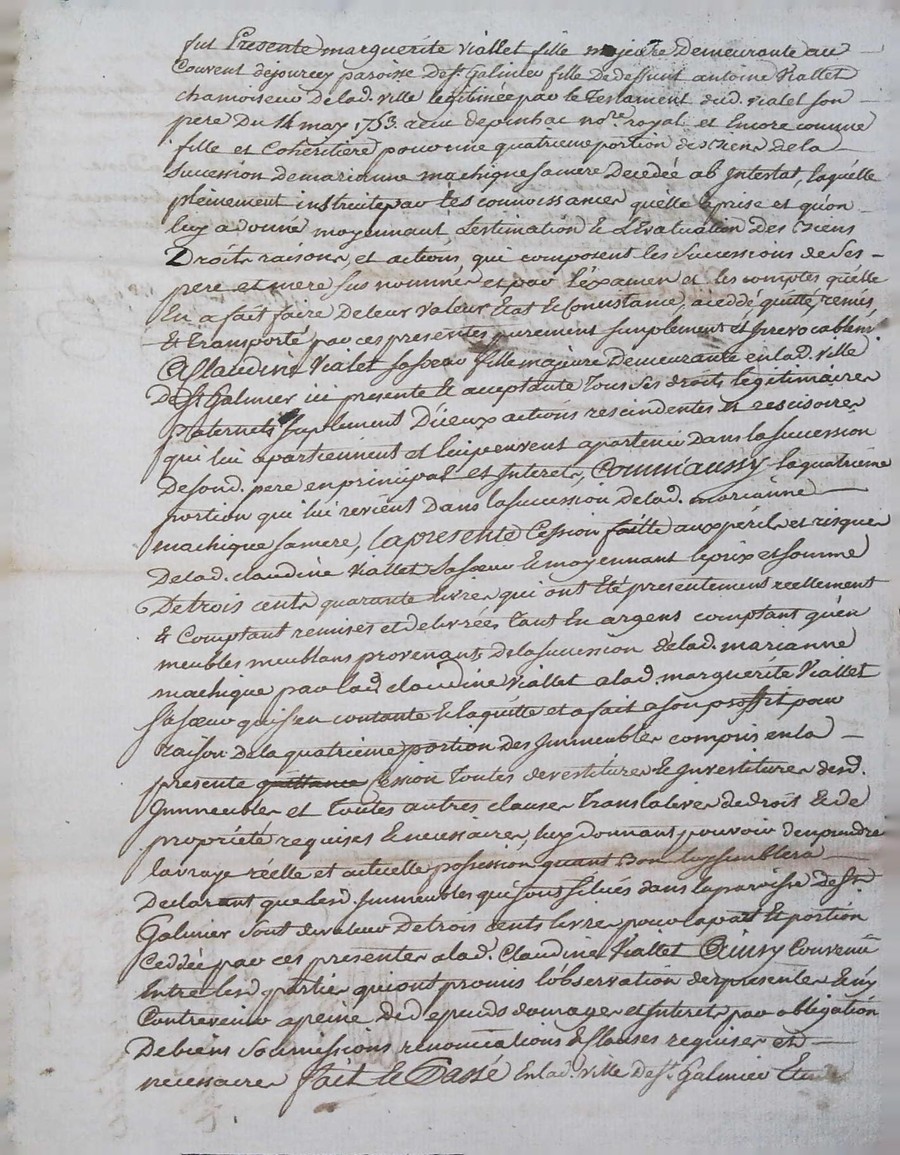 fut Presente marguerite Viallet fille majeure Demeurante au
Couvent de jourcey paroisse De st. Galmier fille De deffunt antoine Viallet
chamoiseur De lad. ville legitimée par le Testament dud. vialet son
pere Du 14 may 1753. recu depinhac nore. royal et Encore comme
fille et Coheritiere pour une quatrieme portion des Biens de la
Succession de marianne machique sa mere Decedée ab Intestat, laquelle
pleinement instruite par les connoissances quelle a prise et quon
luy a donné moyennant Lestimation & L'Evaluation Des Biens
Droits raisons, et actions qui composent les Successions de Ses
pere et mere sus nommés et par l'éxamen et les comptes quelle
En a fait faire De leur valeur Etat & Consistance, a ceddé, quitté, remis,
& transporté par ces presentes purement simplement & irrevocablemt.
A Claudine Vialet sa soeur fille majeure Demeurante en lad. ville
De st. Galmier ici presente & acceptante tous ses droits legitimaires
Paternels suplement D'iceux actions rescindentes et rescisoires
qui lui apartiennent et lui peuvent apartenir Dans la succession
De sond. pere en principal et Interets, Comm'aussy la quatrieme
portion qui lui revient Dans la succession de lad. marianne
machique sa mere, la presente Cession faitte aux périls et risques
De lad. claudine Viallet Sa soeur & moyennant le prix et somme
De trois cents quarante livres qui ont Eté presentement reellement
& Comptant remises et delivrées tant En argens comptant qu'en
meubles meublans provenants de la succession de lad. marianne
machique par lad. claudine Viallet a lad. marguerite Viallet
sa soeur qui s'en contante & la quitte et a fait a son proffit pour
raison De la quatrieme portion des Immeubles compris en la
presente quittance Cession toutes devestitures & Investitures desd.
Immeubles et toutes autres clauses translatives de droit & de
proprieté requises & necessaires, luy donnant pouvoir d'en prendre
la vraye réelle et actuelle possession quant Bon luy semblera
Declarant que lesd. Immeubles qui sont situés dans la paroisse de St.
Galmier sont de valeur De trois cents livres pour la part & portion
Ceddée par ces presentes a lad. Claudine Viallet Ainsy Convenu
Entre lesd. parties qui ont promis l'observation des presentes & n'y
Contrevenir a peine de depends domages et Interets par obligation
De biens Soumissions renonciations & clauses requises et
necessaires fait & Passé En lad. ville de st. Galmier